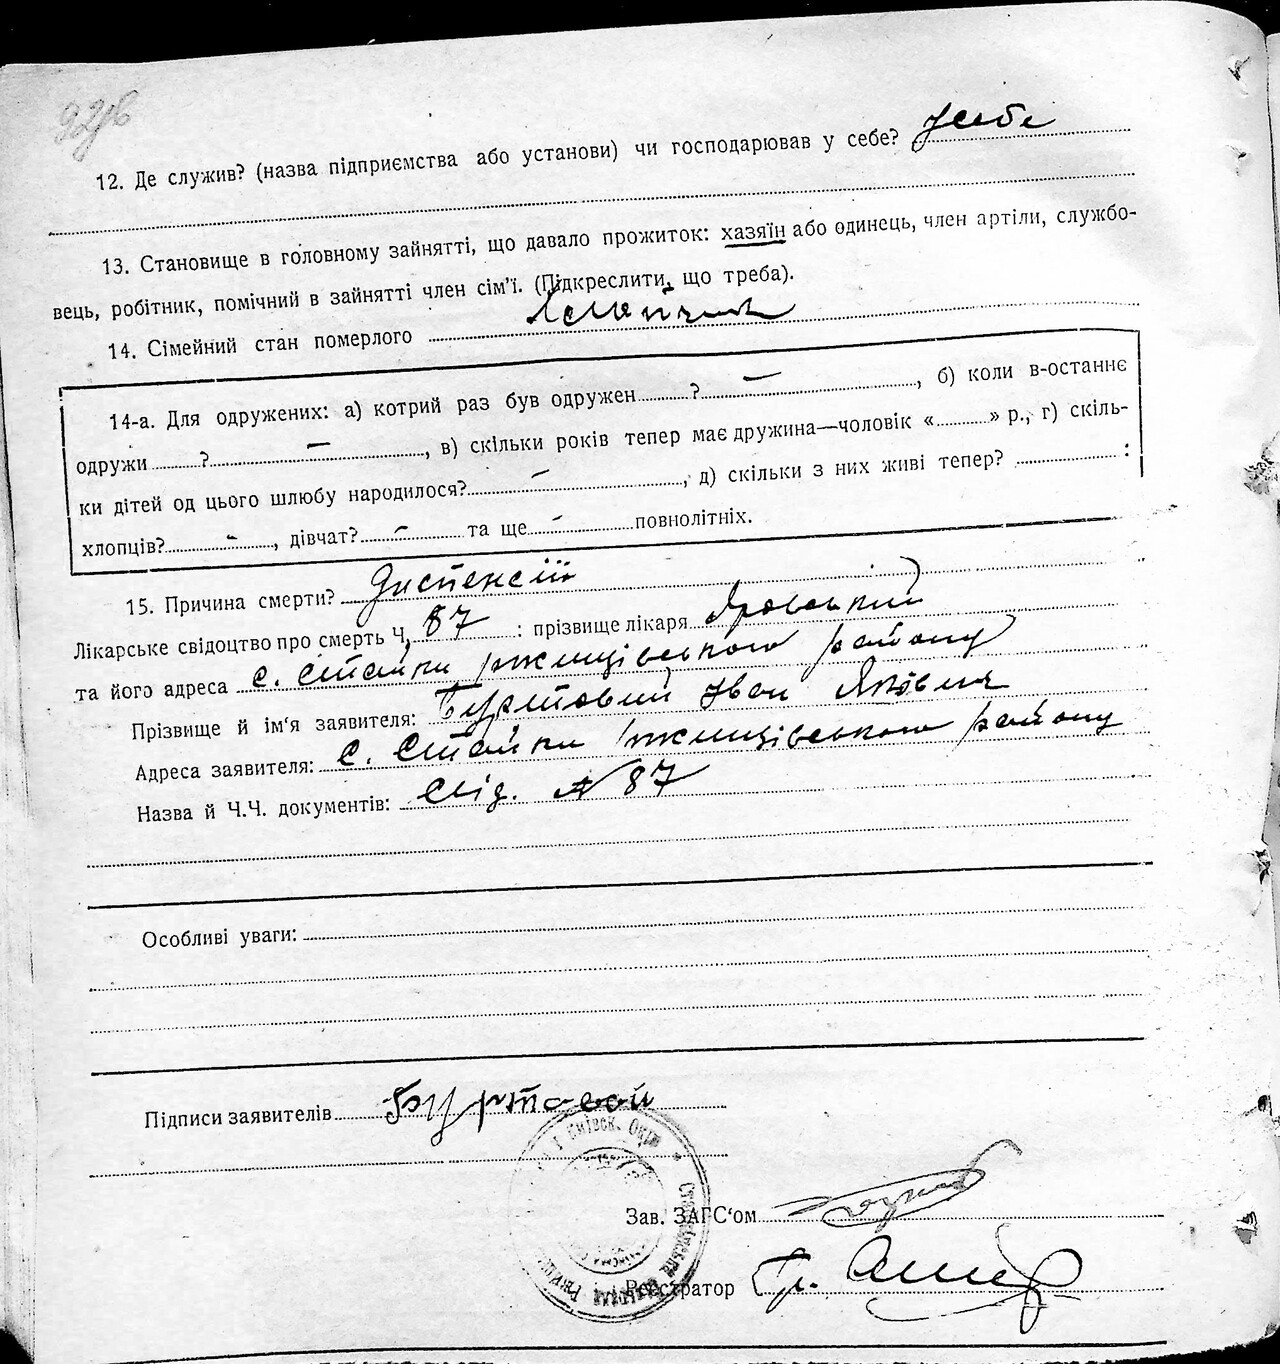 12. Де служив? (назва підприємства або установи) чи господарював у себе? у себе
13. Становище в головному зайнятті, що давало прожиток: хазяїн або одинець, член артіли, службо-
вець, робітник, помічний в зайнятті член сім'ї. (Підкреслити, що треба).
14. Сімейний стан померлого
14-а. Для одружених: а) котрий раз був одружен ? —, б) коли в-останнє
одружи ? —, в) скільки років тепер має дружина—чоловік « » р., г) скіль-
ки дітей од цього шлюбу народилося? —, д) скільки з них живі тепер? :
хлопців? -, дівчат? - та ще - повнолітніх.
15. Причина смерти? Диспенсії
Лікарське свідоцтво про смерть Ч. 87 : прізвище лікаря Яровський
та його адреса с. Стайки Ржищівського району
Прізвище й ім'я заявителя: Буртовий Іван Якович
Адреса заявителя: с. Стайки Ржищівського району
Назва й Ч.Ч. документів: Свід. № 87
Особливі уваги:
Підписи заявителів Буртовой
Київськ. Окр
Зав. ЗАГС'ом
Реєстратор